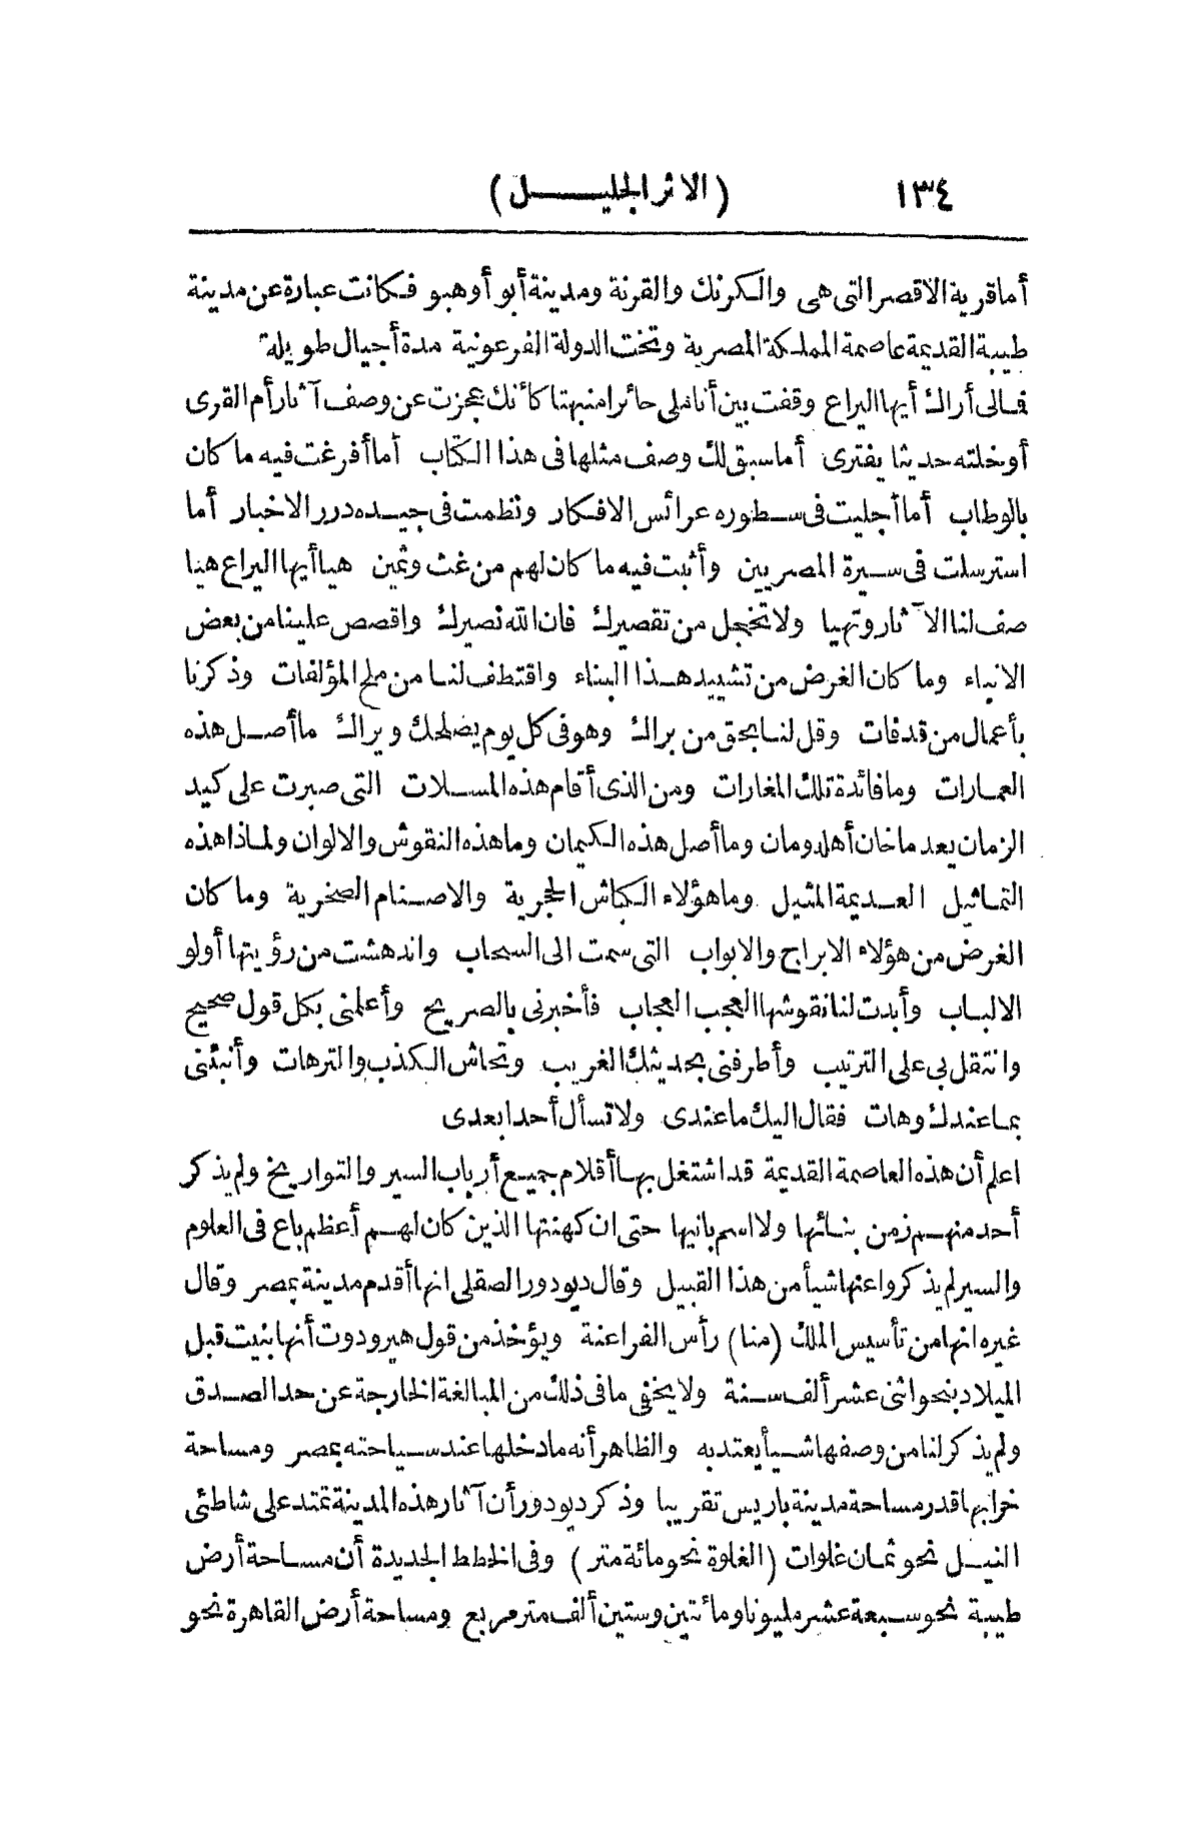 ١٣٤ (الاثر الجليل)
أما قرية الاقصر التى هى والكرنك والقرنة ومدينة أبو أوهبو فكانت عبارة عن مدينة
طيبة القديمة عاصمة المملكة المصرية وتخت الدولة الفرعونية مدة أجيال طويلة
فمالى أراك أيها اليراع وقفت بين أناملى حائرا منبهتا كأنك عجزت عن وصف آثار أم القرى
أو خلته حديثا يفترى أما سبق لك وصف مثلها فى هذا الكتاب أما أفرغت فيه ما كان
بالوطاب أما أجليت فى سطوره عرائس الافكار ونظمت فى جيده درر الاخبار أما
استرسلت فى سيرة المصريين وأثبت فيه ما كان لهم من غث وثمين هيا أيها اليراع هيا
صف لنا الآثار وتهيا ولا تخجل من تقصيرك فان الله نصيرك واقصص علينا من بعض
الانباء وما كان الغرض من تشييد هذا البناء واقتطف لنا من ملح المؤلفات وذكرنا
بأعمال من قد فات وقل لنا بحق من براك وهو فى كل يوم يضلحك ويراك ما أصل هذه
العمارات وما فائدة تلك المغارات ومن الذى أقام هذه المسلات التى صبرت على كيد
الزمان بعد ما خان أهله ومان وما أصل هذه الكيمان وما هذه النقوش والالوان ولماذا هذه
التماثيل العديمة المثيل وما هؤلاء الكباش الحجرية والاصنام الصخرية وما كان
الغرض من هؤلاء الابراج والابواب التى سمت الى السحاب واندهشت من رؤيتها أولو
الالباب وأبدت لنا نقوشها العجب العجاب فأخبرنى بالصريح وأعلمنى بكل قول صحيح
وانتقل بى على الترتيب وأطرفنى بحديثك الغريب وتحاش الكذب والترهات وأنبئنى
بما عندك وهات فقال اليك ما عندى ولا تسأل أحدا بعدى
اعلم أن هذه العاصمة القديمة قد اشتغل بها أقلام جميع أرباب السير والتواريخ ولم يذكر
أحد منهم زمن بنائها ولا اسم بانيها حتى ان كهنتها الذين كان لهم أعظم باع فى العلوم
والسير لم يذكروا عنها شيأ من هذا القبيل وقال ديودور الصقلى انها أقدم مدينة بمصر وقال
غيره انها من تأسيس الملك (منا) رأس الفراعنة ويؤخذ من قول هيرودوت أنها بنيت قبل
الميلاد بنحو اثنى عشر ألف سنة ولا يخفى ما فى ذلك من المبالغة الخارجة عن حد الصدق
ولم يذكر لنا من وصفها شيأ يعتد به والظاهر أنه ما دخلها عند سياحته بمصر ومساحة
خرابها قدر مساحة مدينة باريس تقريبا وذكر ديودور أن آثار هذه المدينة تمتد على شاطئى
النيل نحو ثمان غلوات (الغلوة نحو مائة متر) وفى الخطط الجديدة أن مساحة أرض
طيبة نحو سبعة عشر مليونا ومائتين وستين ألف متر مربع ومساحة أرض القاهرة نحو